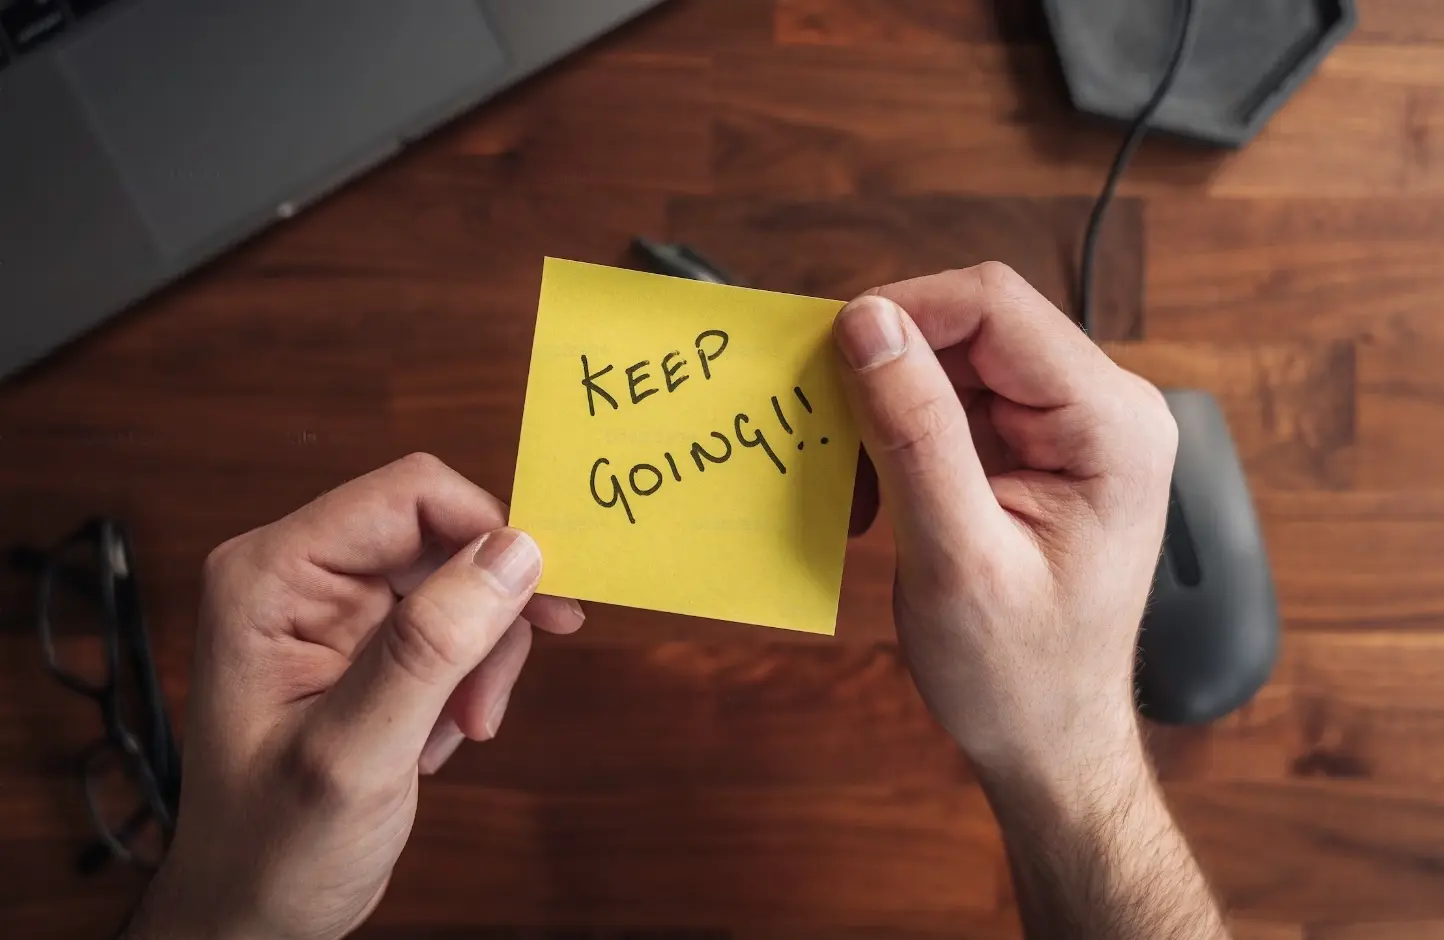 KEEP
GOING!!